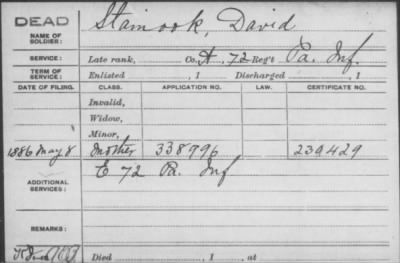 DEAD
NAME OF SOLDIER: Stainrook, David
SERVICE: Late rank, Co. A, 72 Reg't Pa. Inf.
TERM OF SERVICE: Enlisted , 1 Discharged , 1
DATE OF FILING. CLASS. APPLICATION NO. LAW. CERTIFICATE NO.
Invalid,
Widow,
Minor,
1886 May 8 Mother 338996 239429
ADDITIONAL SERVICES: E 72 Pa. Inf
REMARKS:
Died , 1 , at